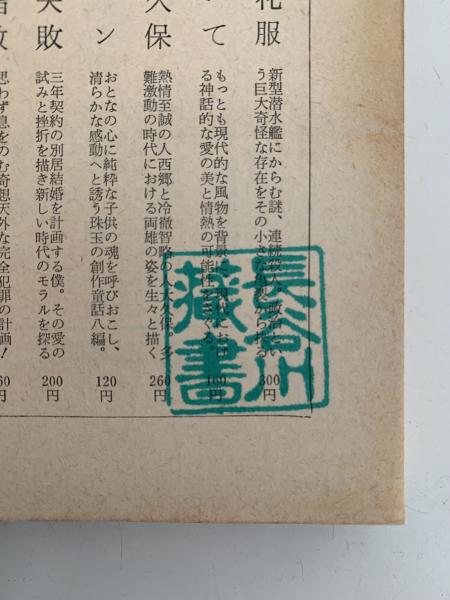 礼服
新型潜水艦にからむ謎、連続殺人、政治とい
う巨大奇怪な存在をその小さな亀裂から探る
300円
て
もっとも現代的な風物を背景に、現代におけ
る神話的な愛の美と情熱の可能性をさぐる。
160円
久保
熱情至誠の人西郷と冷徹智略の人大久保。多
難激動の時代における両雄の姿を生々と描く
260円
ン
おとなの心に純粋な子供の魂を呼びおこし、
清らかな感動へと誘う珠玉の創作童話八編。
120円
失敗
三年契約の別居結婚を計画する僕。その愛の
試みと挫折を描き新しい時代のモラルを探る
200円
思わず息をのむ奇想天外な完全犯罪の計画!
60円
長谷川
蔵書